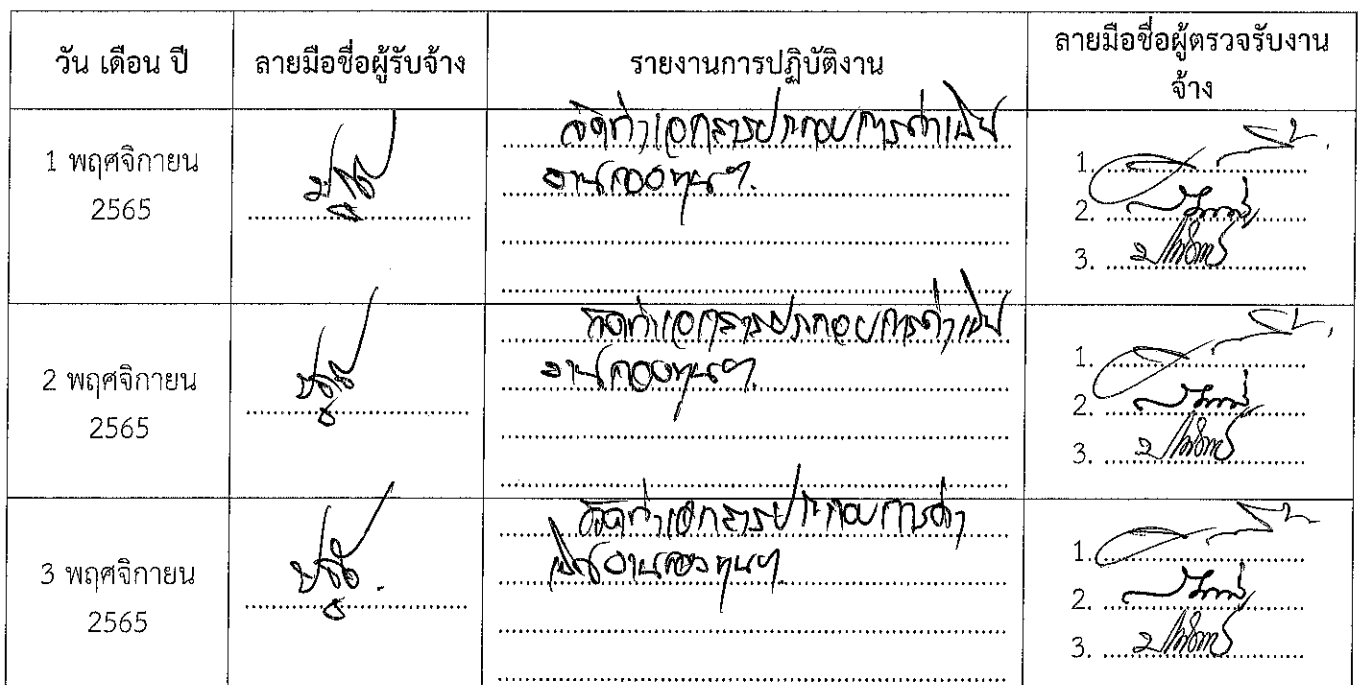 วัน เดือน ปี
ลายมือชื่อผู้รับจ้าง
รายงานการปฏิบัติงาน
ลายมือชื่อผู้ตรวจรับงาน
จ้าง
1 พฤศจิกายน
2565
จัดทำเอกสารประกอบการดำเนิน
งานกองทุนฯ
1.
2.
3.
2 พฤศจิกายน
2565
จัดทำเอกสารประกอบการดำเนิน
งานกองทุนฯ
1.
2.
3.
3 พฤศจิกายน
2565
จัดทำเอกสารประกอบการดำ
เนินงานกองทุนฯ
1.
2.
3.